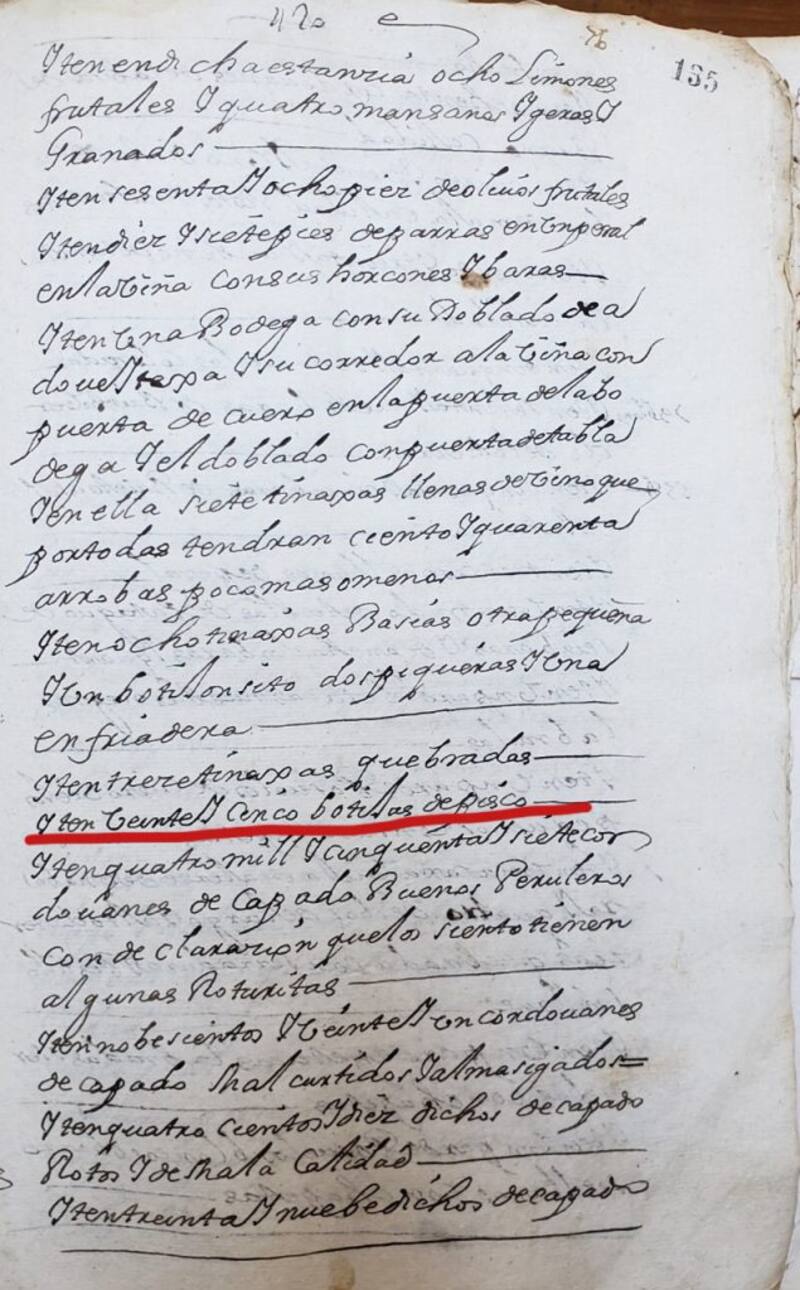 420
76
135
Yten en dicha estanzia ocho Limones
frutales Y quatro mansanos Ygeras Y
Granados
Yten sesenta Y ocho piez de oliuos frutales
Yten diez Y siete pies de parras en Un peral
en la Viña con sus horcones Y baras
Yten Una Bodega con su Doblado de a
doue Y tapa Y su corredor a la Viña con
puerta de cuero en la puerta de la bo
dega Y el doblado con puerta de tabla
Y en ella siete tinaxas llenas de Vino que
por todas tendran ciento Y quarenta
arrobas poco mas o menos
Yten ocho tinaxas Basias otra pequeña
Y Un botiLonsito dos piqueras Y Una
enfriadera
Yten trece tinaxas quebradas
Yten Veinte Y Cinco botiJas de pisco
Yten quatro mill Y cinquenta Y siete cor
douanes de Capado Buenos Peruleros
con declarazion que los siento tienen
algunas Roturitas
Yten nobesientos Y Veinte Y Un cordouanes
de capado Mal curtidos Y almasigados
Yten quatro cientos Y diez dichos de capado
Rotos Y de Mala Calidad
Yten treinta Y nuebe dichos de capado